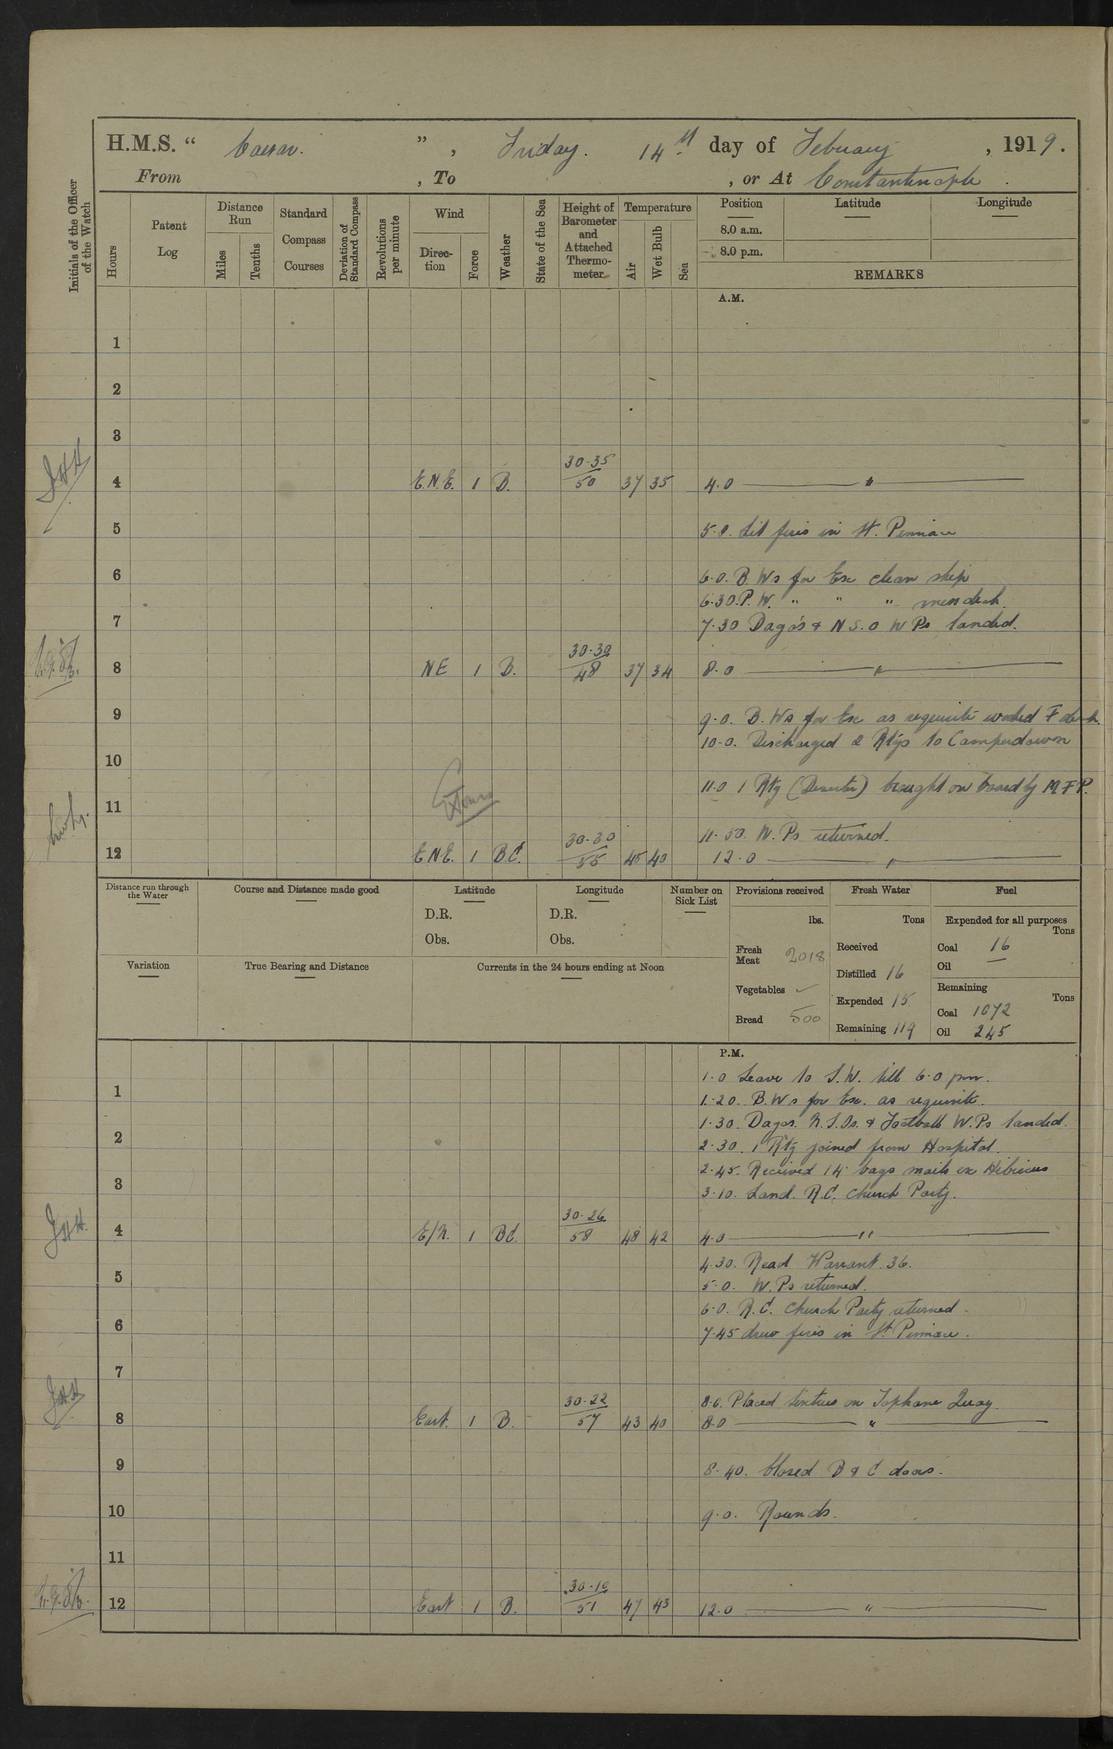 H.M.S. “ Caesar. ” , Friday. 14th day of Febuary , 1919.
From , To , or At Constantinople .
Initials of the Officer of the Watch
Hours
Patent Log
Distance Run
Miles
Tenths
Standard Compass Courses
Deviation of Standard Compass
Revolutions per minute
Wind
Direction
Force
Weather
State of the Sea
Height of Barometer and Attached Thermometer
Temperature
Air
Wet Bulb
Sea
Position Latitude Longitude
8.0 a.m.
8.0 p.m.
REMARKS
A.M.
1
2
3
4 E.N.E. 1 B. 30.35/50 37 35 4.0 "
5 5.0. Lit fires in St. Pinnace
6 6.0. B.Ws for Ex clean ship
6.30. P.W. " " " messdeck.
7 7.30 Dago's & N S.O W Ps landed.
8 NE 1 B. 30.30/48 37 34 8.0 "
9 9.0. B.Ws for Ex as requisite washed F deck.
10.0. Discharged 2 Rtgs to Camperdown
10
11.0 1 Rtg (Deserter) brought on board by M.F.P.
11
11.50. W.Ps returned.
12 E.N.E. 1 B.C. 30.30/55 45 40 12.0 "
Distance run through the Water
Course and Distance made good
Latitude
D.R.
Obs.
Longitude
D.R.
Obs.
Number on Sick List
Provisions received
lbs.
Fresh Meat 2018
Vegetables
Bread 500
Fresh Water
Tons
Received
Distilled 16
Expended 15
Remaining 119
Fuel
Expended for all purposes
Tons
Coal 16
Oil —
Remaining
Tons
Coal 1072
Oil 245
Variation
True Bearing and Distance
Currents in the 24 hours ending at Noon
P.M.
1.0 Leave to S.W. till 6.0 pm.
1 1.20. B.Ws for Ex. as requisite.
1.30. Dagos. N.S.Os. & Football W.Ps landed.
2 2.30. 1 Rtg joined from Hospital.
2.45. Received 14 bags mails ex Hibiscus
3 3.10. Land. R.C. Church Party.
4 E/N. 1 BC. 30.26/58 48 42 4.0 "
4.30. Read Warrant. 36.
5 5.0. W.Ps returned.
6.0. R.C. Church Party returned.
6 7.45 drew fires in St. Pinnace.
7
8.0. Placed sentries on Tophane Quay.
8 East. 1 B. 30.22/57 43 40 8.0 "
9 8.40. Closed B & C doors.
10 9.0. Rounds.
11
12 East 1 B. 30.10/51 47 43 12.0 "